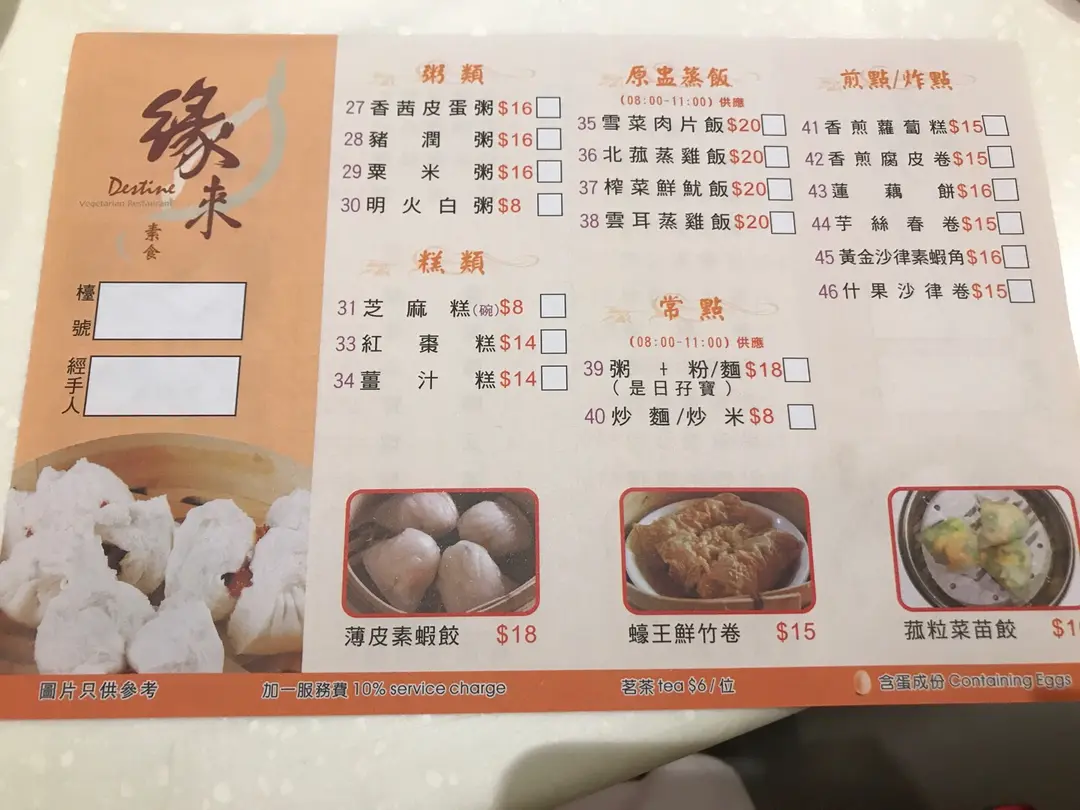 緣來
Destine
Vegetarian Restaurant
素食
檯號
經手人
粥類
27 香茜皮蛋粥 $16
28 豬潤粥 $16
29 粟米粥 $16
30 明火白粥 $8
糕類
31 芝麻糕(碗) $8
33 紅棗糕 $14
34 薑汁糕 $14
原盅蒸飯
(08:00-11:00) 供應
35 雪菜肉片飯 $20
36 北菰蒸雞飯 $20
37 榨菜鮮魷飯 $20
38 雲耳蒸雞飯 $20
常點
(08:00-11:00) 供應
39 粥 + 粉/麵 $18
(是日孖寶)
40 炒麵/炒米 $8
煎點/炸點
41 香煎蘿蔔糕 $15
42 香煎腐皮卷 $15
43 蓮藕餅 $16
44 芋絲春卷 $15
45 黃金沙律素蝦角 $16
46 什果沙律卷 $15
薄皮素蝦餃 $18
蠔王鮮竹卷 $15
菰粒菜苗餃
圖片只供參考
加一服務費 10% service charge
茗茶 tea $6/位
含蛋成份 Containing Eggs